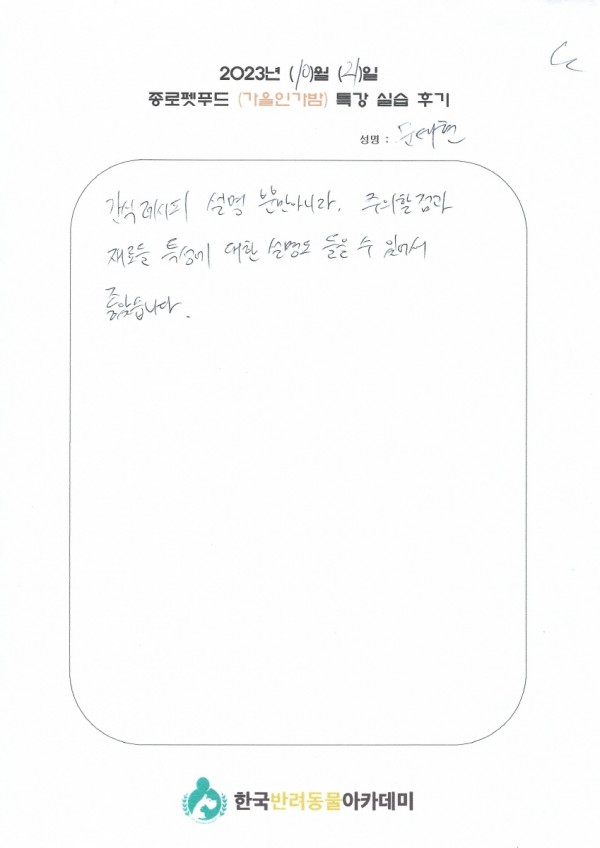 2023년 (10)월 (21)일
종로펫푸드 (가을인가밤) 특강 실습 후기
성명 : 문세현
간식 레시피 설명 뿐만아니라. 주의할점과
재료들 특성에 대한 설명도 들을 수 있어서
좋았습니다.
한국반려동물아카데미